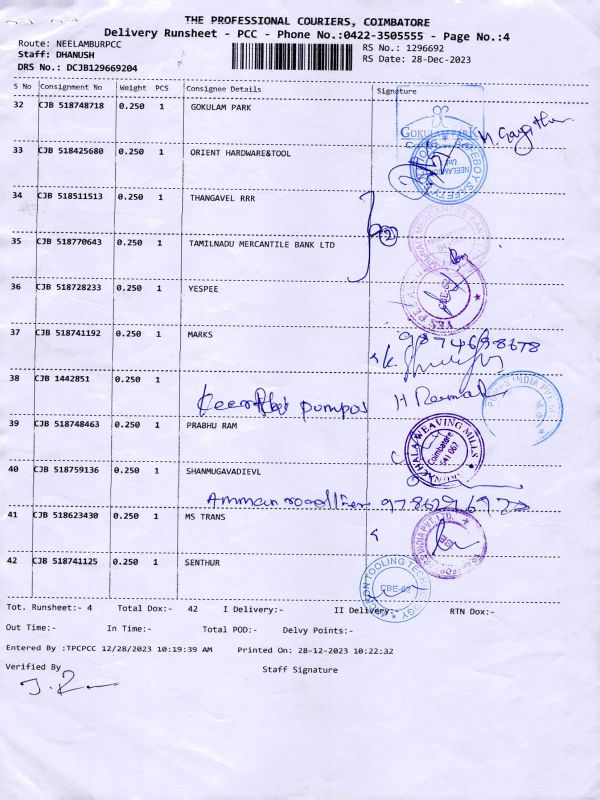 THE PROFESSIONAL COURIERS, COIMBATORE
Delivery Runsheet - PCC - Phone No.:0422-3505555 - Page No.:4
Route: NEELAMBURPCC
RS No.: 1296692
Staff: DHANUSH
RS Date: 28-Dec-2023
DRS No.: DCJB129669204
S No Consignment No Weight PCS Consignee Details Signature
32 CJB 518748718 0.250 1 GOKULAM PARK
GOKULAM PARK
33 CJB 518425680 0.250 1 ORIENT HARDWARE&TOOL
34 CJB 518511513 0.250 1 THANGAVEL RRR
2
35 CJB 518770643 0.250 1 TAMILNADU MERCANTILE BANK LTD
36 CJB 518728233 0.250 1 YESPEE
37 CJB 518741192 0.250 1 MARKS
38 CJB 1442851 0.250 1
pumps
39 CJB 518748463 0.250 1 PRABHU RAM
WEAVING MILLS
Coimbatore
641 062
40 CJB 518759136 0.250 1 SHANMUGAVADIEVL
Amman roadlines
41 CJB 518623430 0.250 1 MS TRANS
INDIA PVT LTD.
42 CJB 518741125 0.250 1 SENTHUR
TOOLING TECHNOLOGY
CBE-62
Tot. Runsheet:- 4 Total Dox:- 42 I Delivery:- II Delivery:- RTN Dox:-
Out Time:- In Time:- Total POD:- Delvy Points:-
Entered By :TPCPCC 12/28/2023 10:19:39 AM Printed On: 28-12-2023 10:22:32
Verified By
Staff Signature